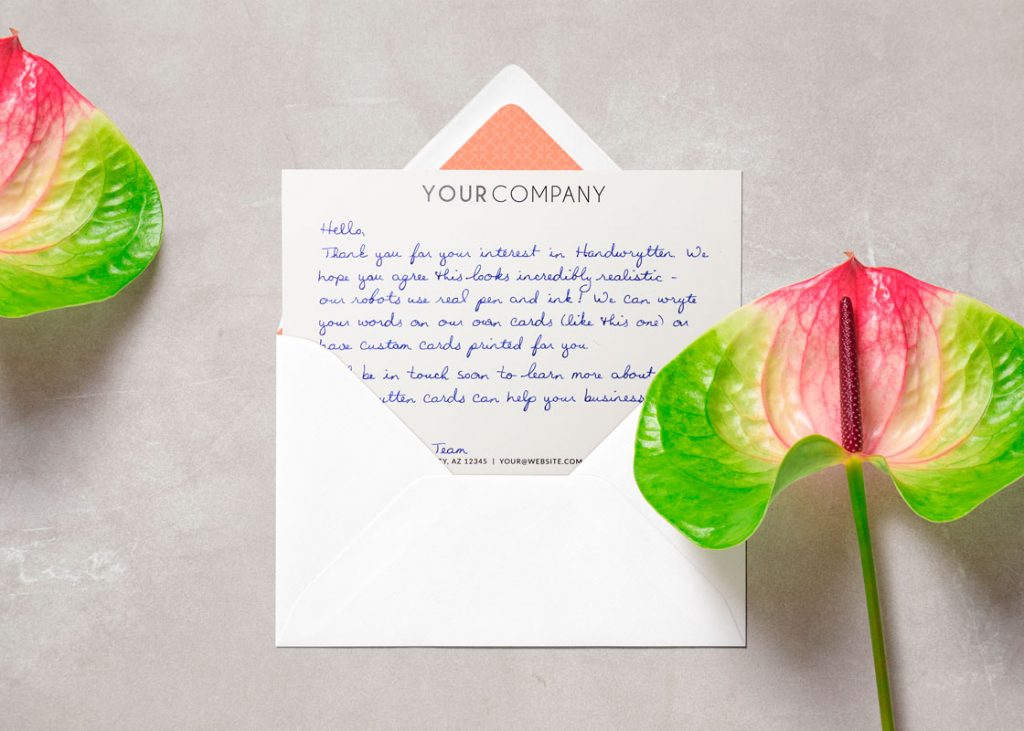 YOURCOMPANY
Hello,
Thank you for your interest in Handwrytten. We
hope you agree this looks incredibly realistic -
our robots use real pen and ink! We can wryte
your words on our own cards (like this one) or
have custom cards printed for you.
be in touch soon to learn more about
cards can help your business
Team
AZ 12345 | YOUR@WEBSITE.COM